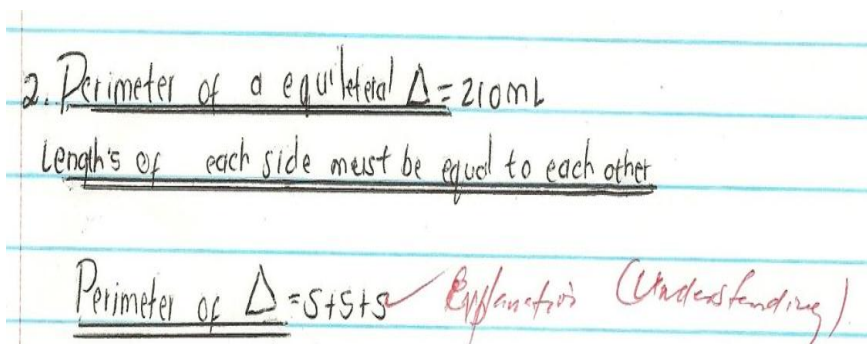 2. Perimeter of a equileteral Δ = 210mL
Length's of each side must be equal to each other
Perimeter of Δ = S+S+S ✓ Explanation (Understanding)